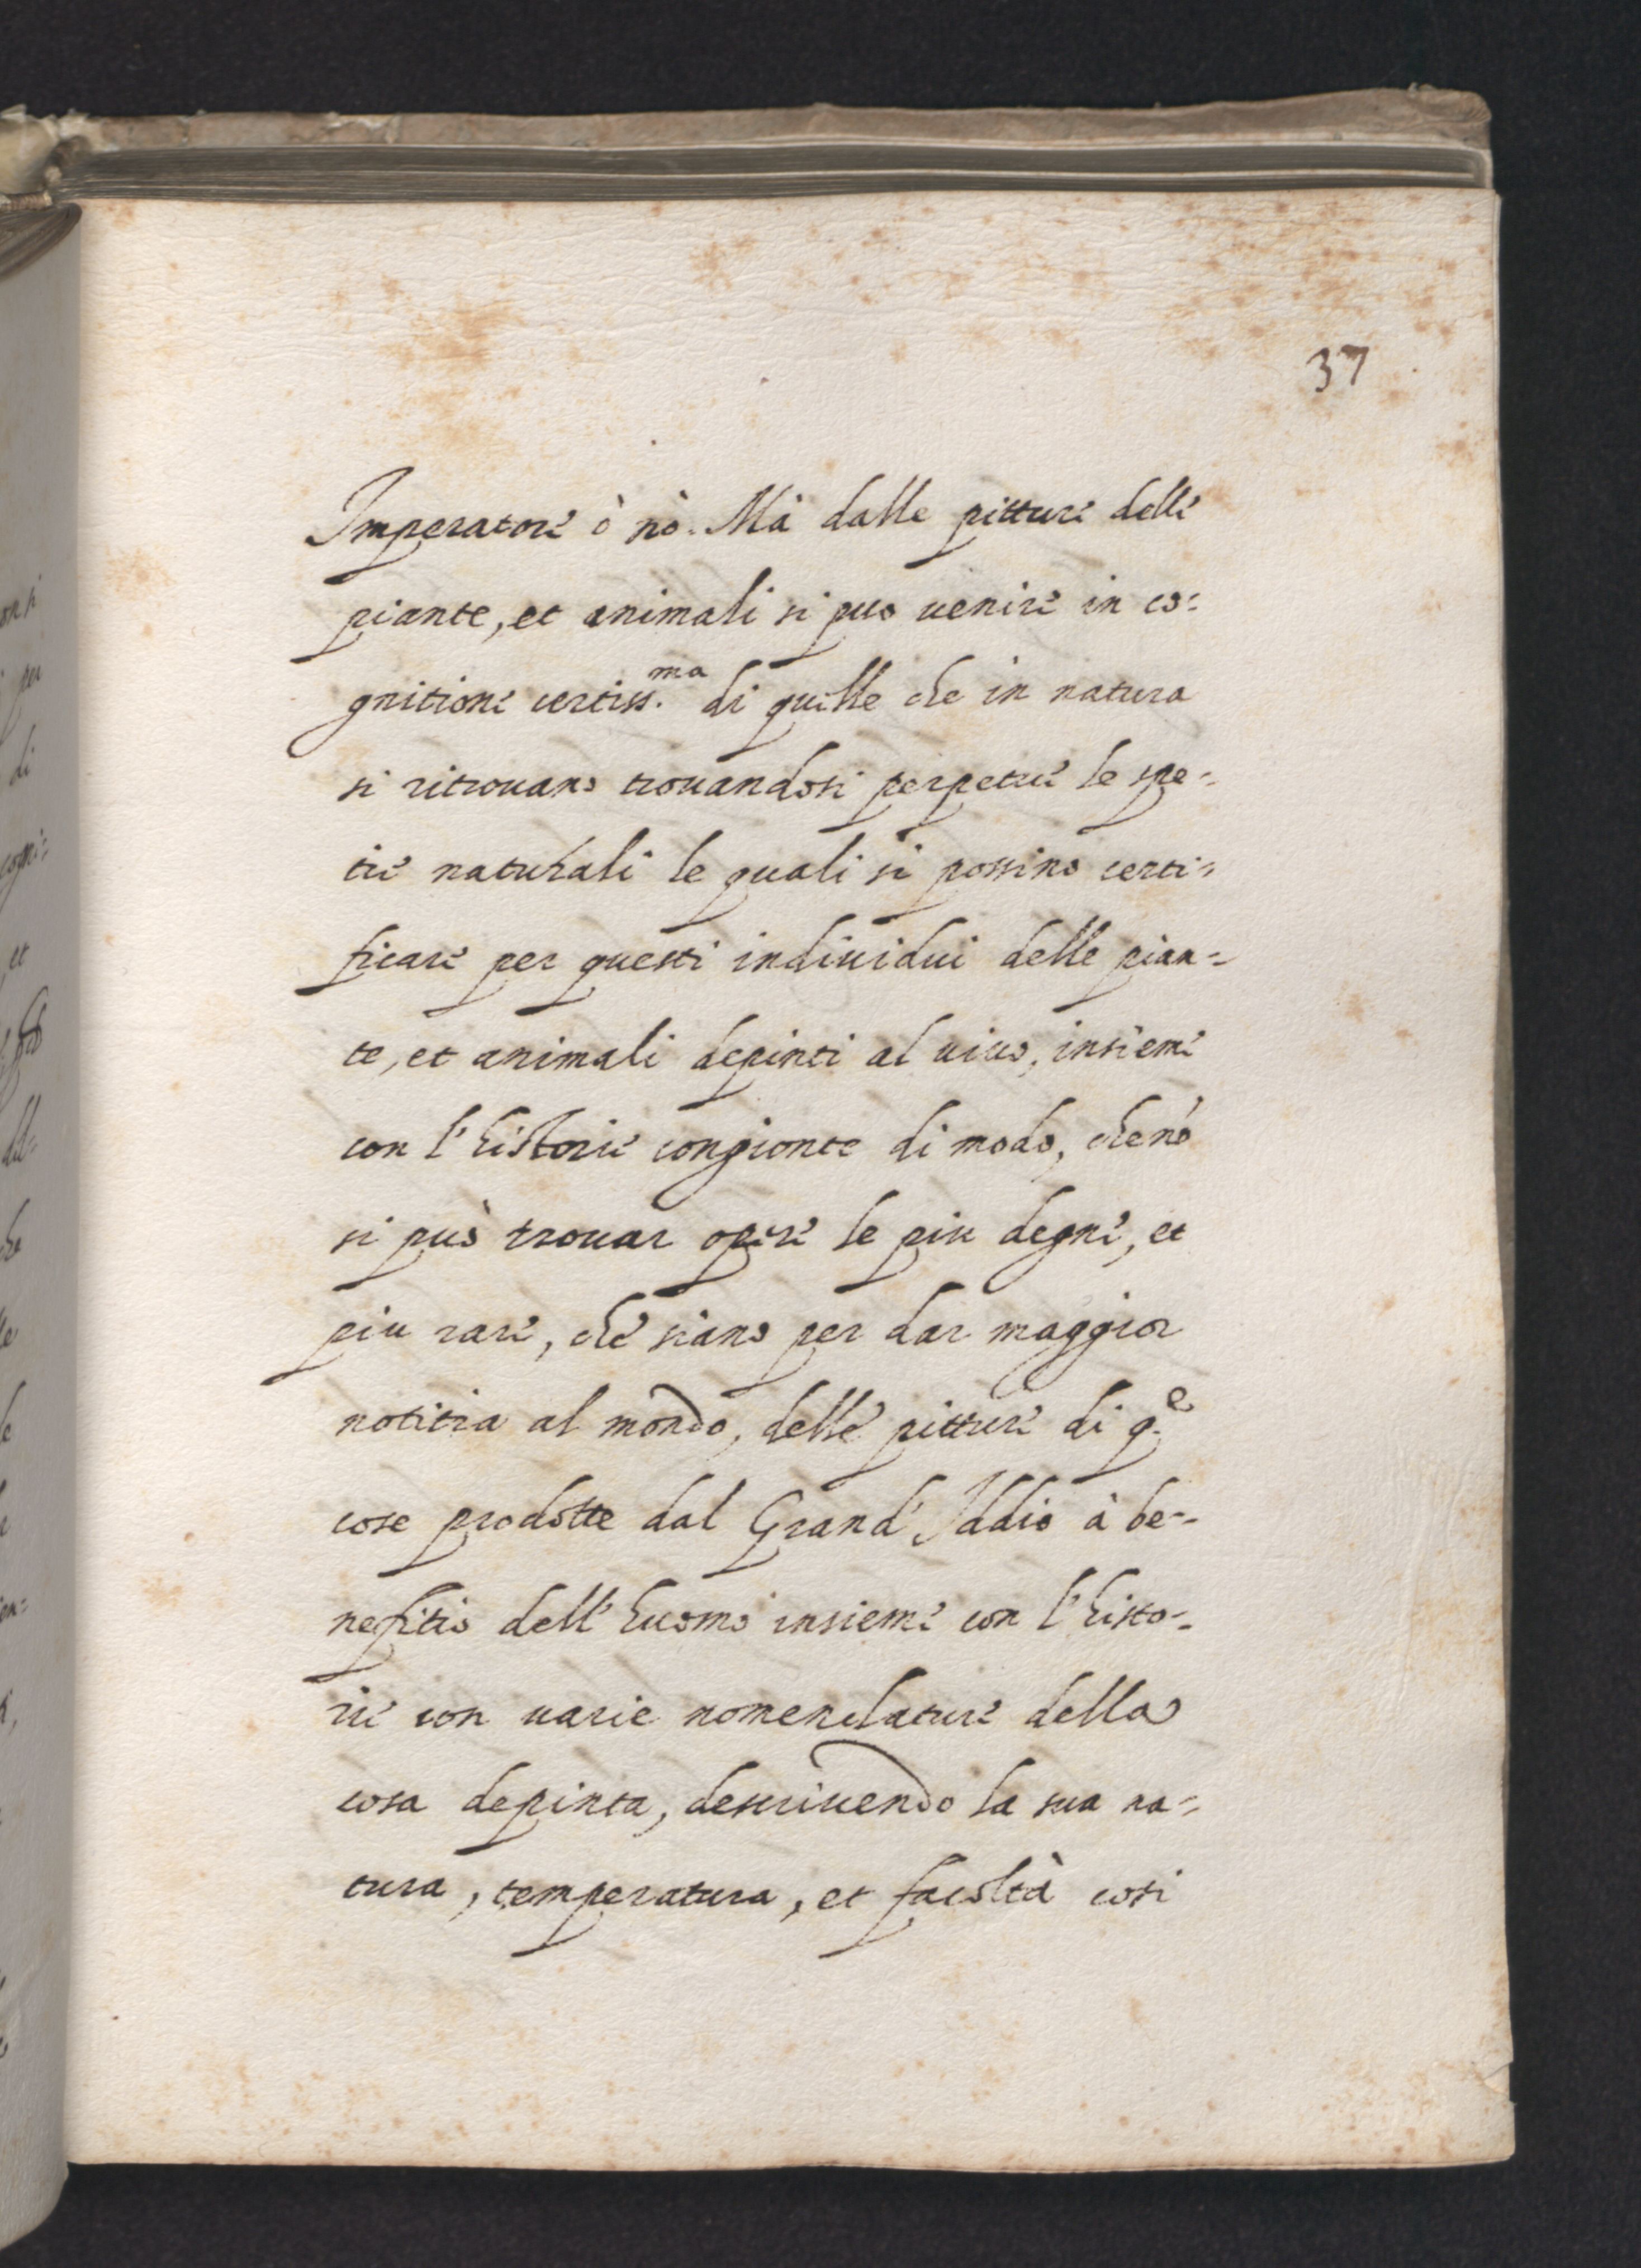 37
Imperatore ò nò. Mà dalle pitture delle
piante, et animali si puo uenire in co=
gnitione certiss.ma di quelle che in natura
si ritrouano trouandosi perpetue le spe=
tie naturali le quali si possino certi=
ficare per questi indiuidui delle pian=
te, et animali depinti al uiuo, insieme
con l'historie congionte di modo, che nò
si può trouar opere le piu degne, et
piu rare, che siano per dar maggior
notitia al mondo, delle pitture di q.e
cose prodotte dal Grand' Iddio à be=
nefitio dell' huomo insieme con l'histo=
rie con uarie nomenclature della
cosa depinta, descriuendo la sua na=
tura, temperatura, et facoltà cosi